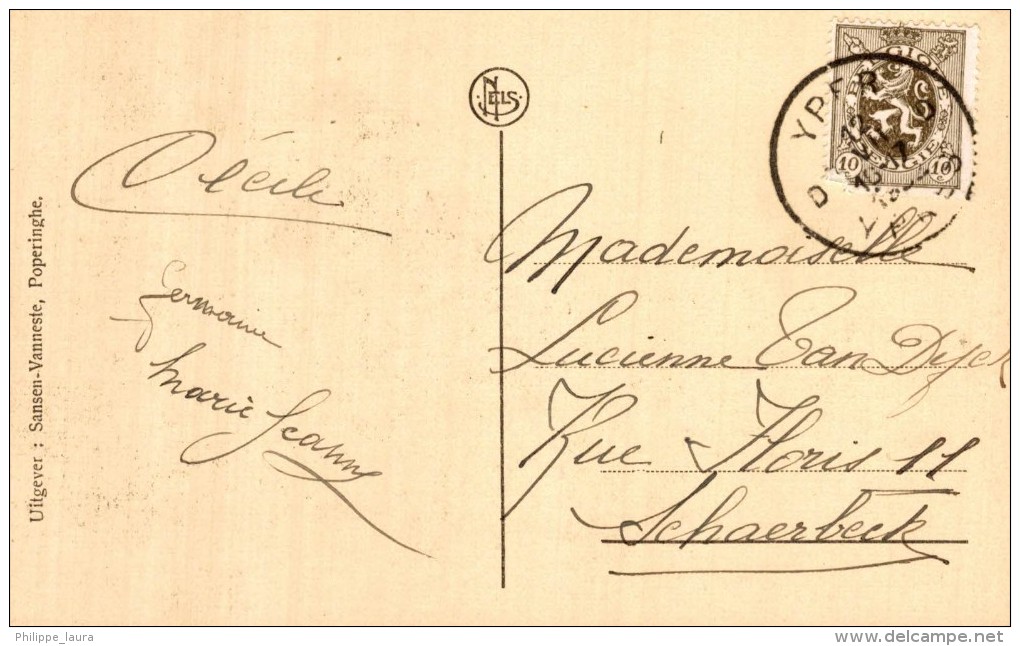 Uitgever : Sansen-Vanneste, Poperinghe.
NELS
Cécile
Germaine
Marie Jeanne
BELGIQUE
BELGIË
10 10
YPER
Mademoiselle
Lucienne Van Dijck
Rue Floris 11
Schaerbeck
Philippe_laura
delcampe.net